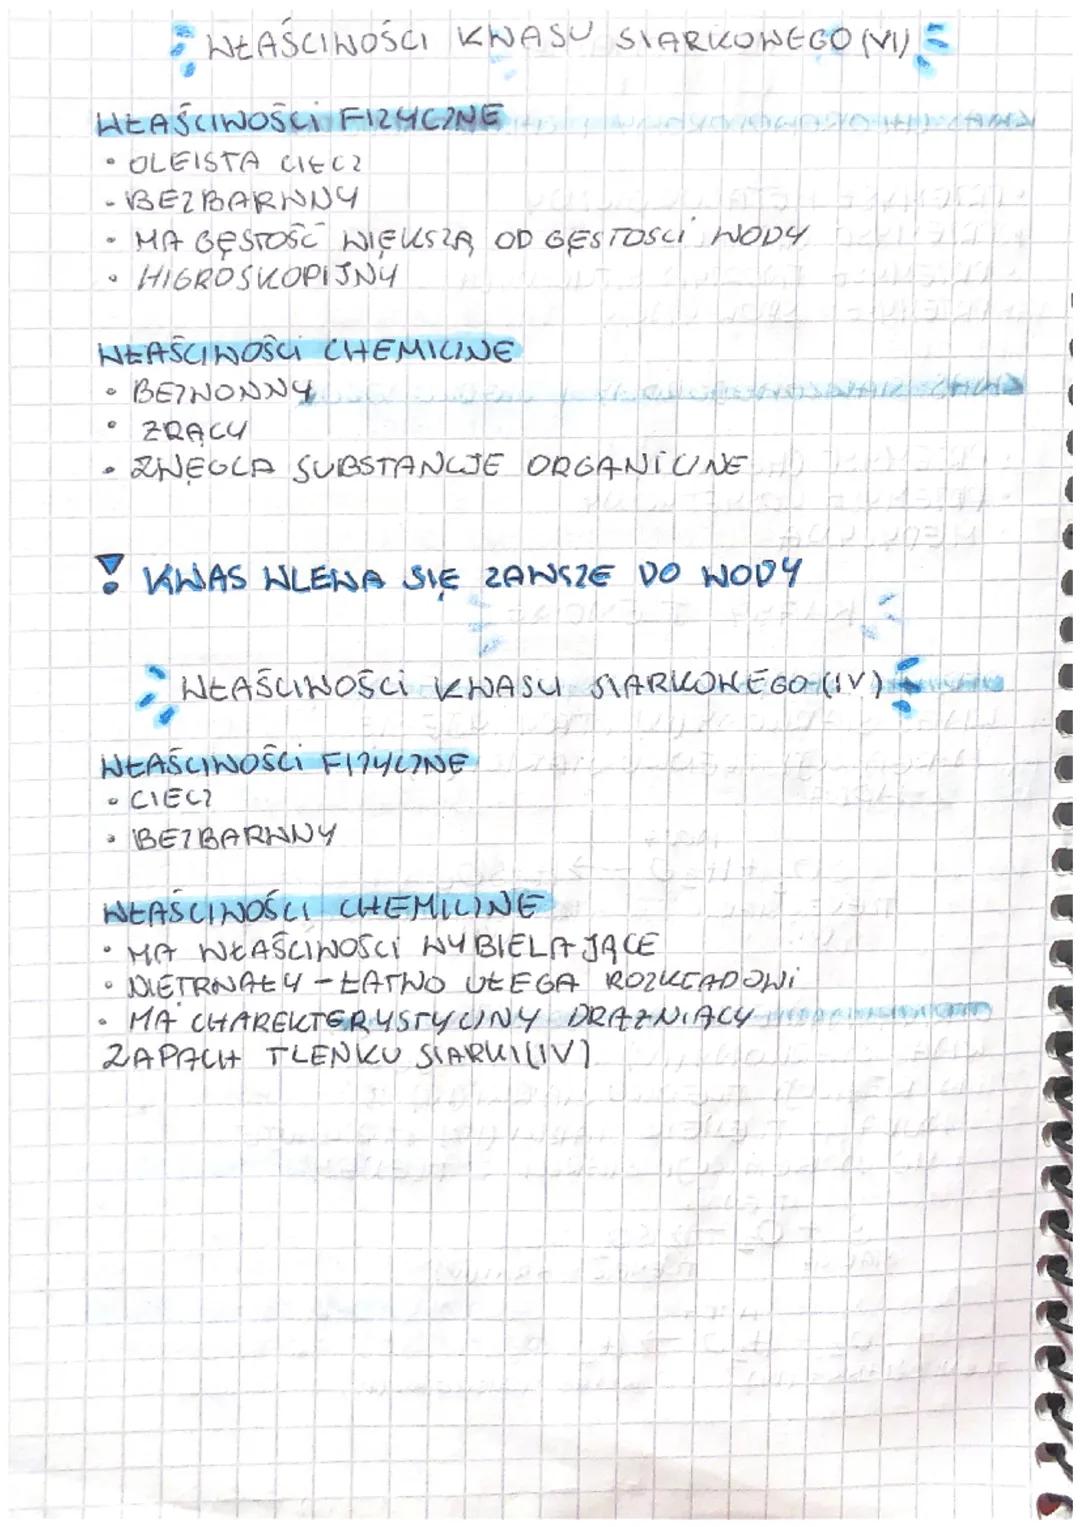 WŁAŚCIWOŚCI KWASU SIARKOWEGO (VI)
WŁAŚCIWOŚCI FIZYCZNE
• OLEISTA CIECZ
• BEZBARWNY
• MA GĘSTOŚĆ WIĘKSZĄ OD GĘSTOSCI WODY
• HIGROSKOPIJNY
WŁAŚCIWOŚCI CHEMICZNE
• BEZWONNY
• ŻRĄCY
• ZWĘGLA SUBSTANCJE ORGANICZNE
! KWAS WLEWA SIĘ ZAWSZE DO WODY
WŁAŚCIWOŚCI KWASU SIARKOWEGO (IV)
WŁAŚCIWOŚCI FIZYCZNE
• CIECZ
• BEZBARWNY
WŁAŚCIWOŚCI CHEMICZNE
• MA WŁAŚCIWOŚCI WYBIELAJĄCE
• NIETRWAŁY - ŁATWO UŁEGA ROZKŁADOWI
• MA CHAREKTERYSTYCZNY DRAŻNIĄCY
ZAPACH TLENKU SIARKI (IV)